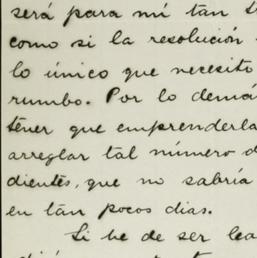 será para mí tan
como si la resolución
lo único que necesito
rumbo. Por lo demá
tener que emprenderla
arreglar tal número d
dientes, que no sabría
en tan pocos dias.
Si he de ser lea